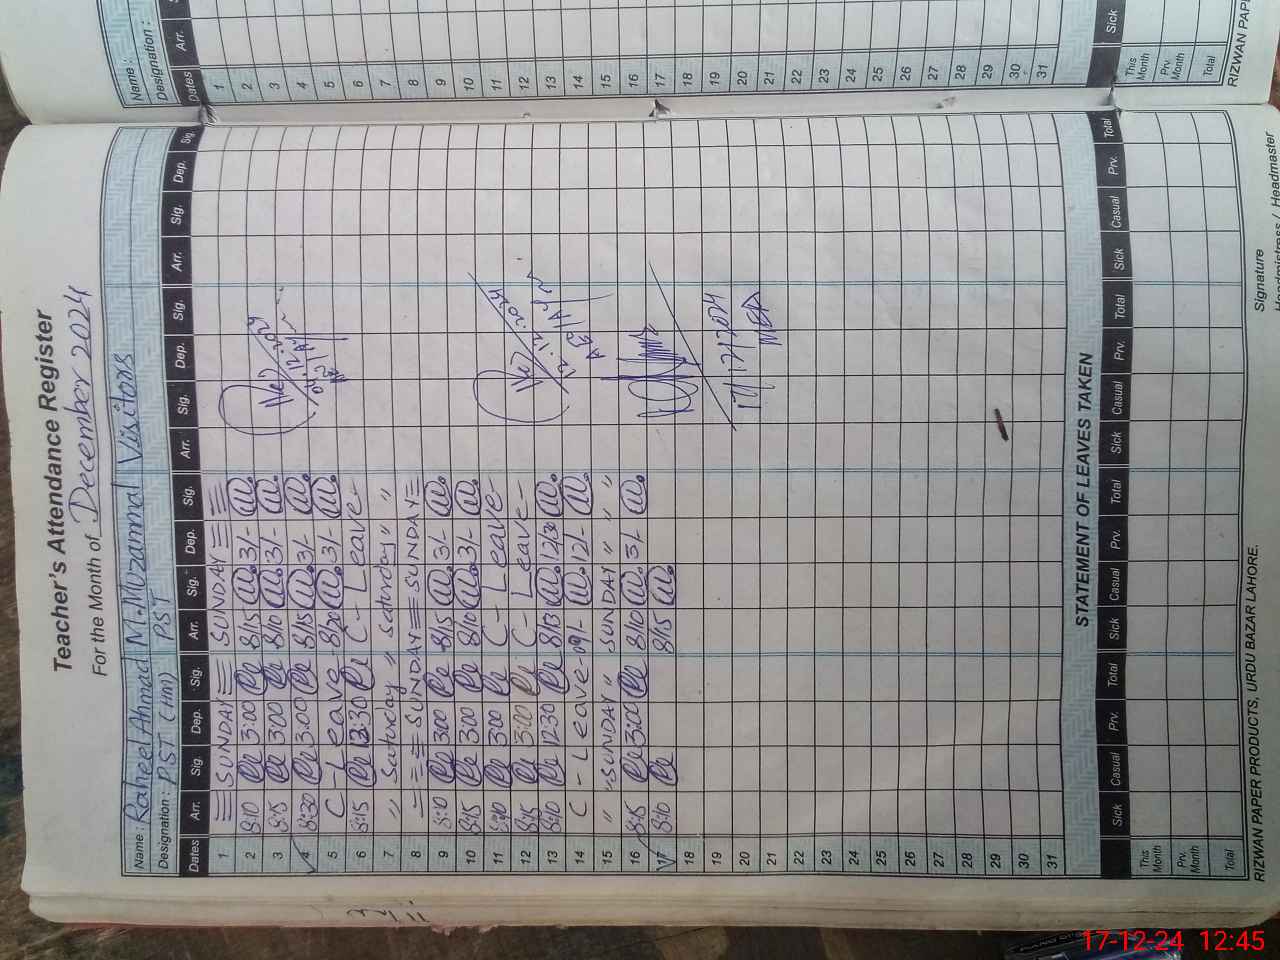 Teacher's Attendance Register
For the Month of December 2024
Name : Raheel Ahmad M. Muzammal Visitors
Designation : PST (HM) PST
Dates Arr. Sig. Dep. Sig. Arr. Sig. Dep. Sig. Arr. Sig. Dep. Sig. Arr. Sig. Dep. Sig.
1 SUNDAY SUNDAY
2 8:10 3:00 8/15 3/-
3 8:15 3:00 8/10 3/-
4 8:30 3:00 8/15 3/-
5 C - Leave 8/20 3/-
6 8:15 12:30 C - Leave -
7 " Saturday " " Saturday " "
8 = SUNDAY = SUNDAY =
9 8:10 3:00 8/15 3/-
10 8:15 3:00 8/10 3/-
11 8:10 3:00 C - Leave -
12 8:15 3:00 C - Leave -
13 8:10 12:30 8/13 12/30
14 C - Leave - 09/- 12/-
15 " " SUNDAY " SUNDAY " " "
16 8:15 3:00 8/10 3/-
17 8:10 8/15
18
19
20
21
22
23
24
25
26
27
28
29
30
31
12.12.2024
17/12/2024
STATEMENT OF LEAVES TAKEN
Sick Casual Prv. Total Sick Casual Prv. Total Sick Casual Prv. Total Sick Casual Prv. Total
This Month
Prv. Month
Total
RIZWAN PAPER PRODUCTS, URDU BAZAR LAHORE.
Signature
Headmistress / Headmaster
Name :
Designation :
Dates Arr.
1
2
3
4
5
6
7
8
9
10
11
12
13
14
15
16
17
18
19
20
21
22
23
24
25
26
27
28
29
30
31
Sick
This Month
Prv. Month
Total
RIZWAN PAP
17-12-24 12:45